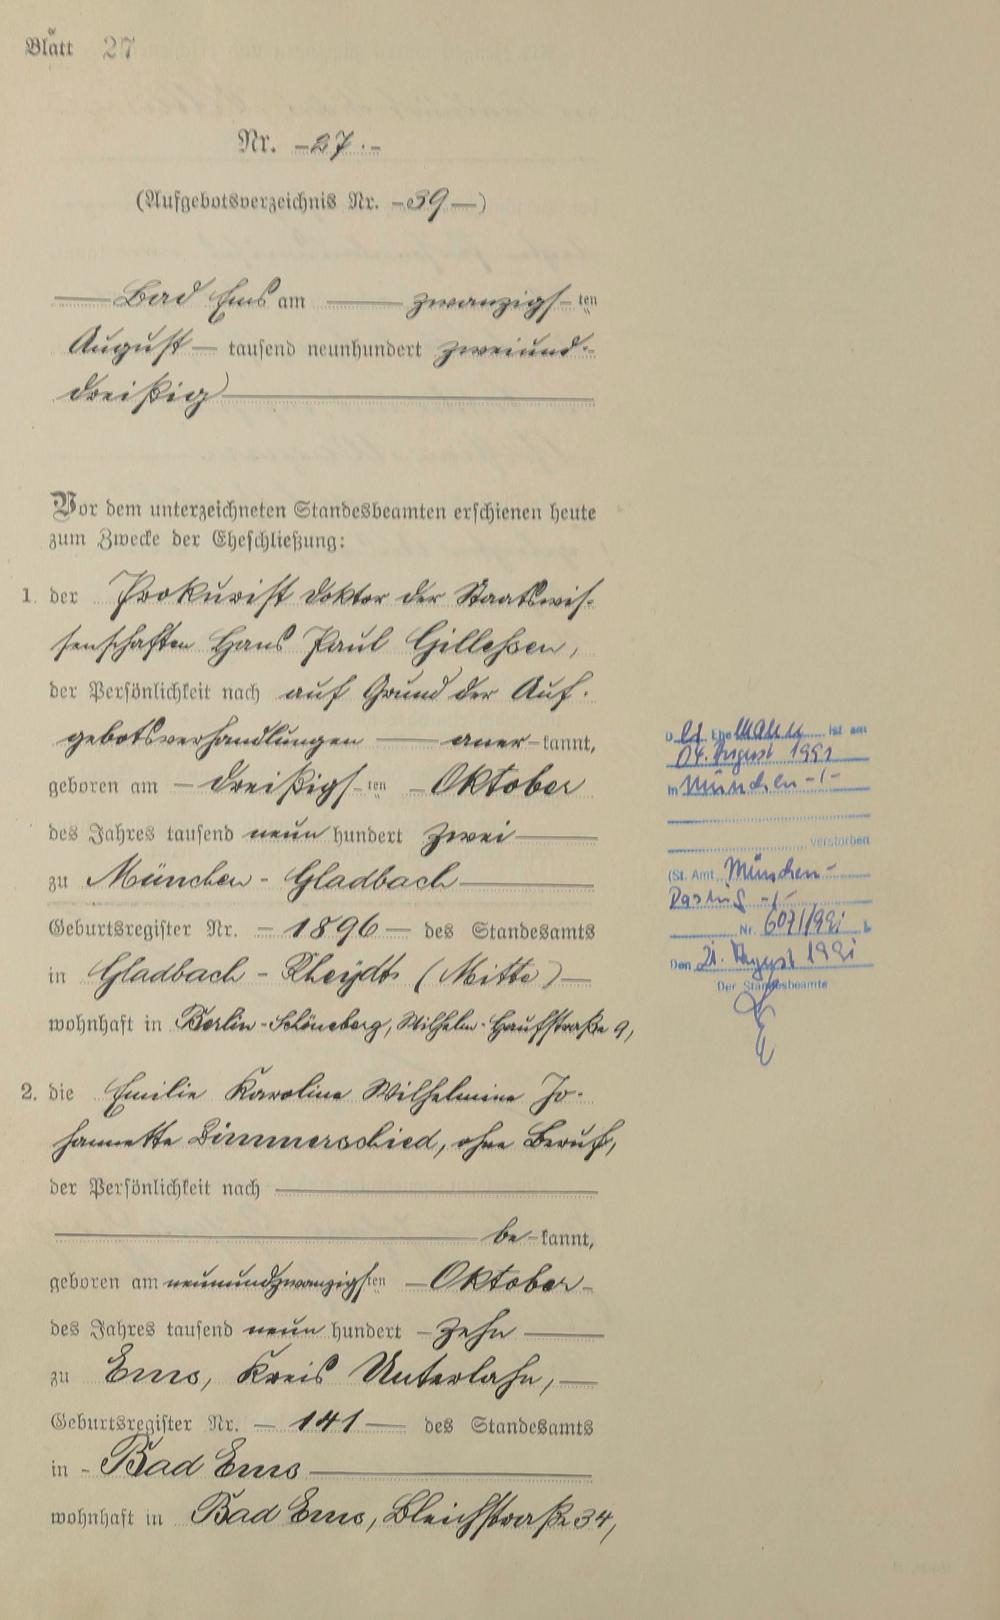 Blatt 27
Nr. -27.-
(Aufgebotsverzeichnis Nr. -39-)
Bad Ems am zwanzigsten
August tausend neunhundert zweiund-
dreißig
Vor dem unterzeichneten Standesbeamten erschienen heute
zum Zwecke der Eheschließung:
1. der Prokurist Doktor der Staatswis-
senschaften Hans Paul Gillessen,
der Persönlichkeit nach auf Grund der Auf-
gebotsverhandlungen anerkannt,
geboren am dreißigsten Oktober
des Jahres tausend neun hundert zwei
zu München-Gladbach
Geburtsregister Nr. -1896- des Standesamts
in Gladbach-Rheydt (Mitte)
wohnhaft in Berlin-Schöneberg, Wilhelm-Hauffstraße 9,
2. die Emilie Karoline Wilhelmine Jo-
hannette Linnerschied, ohne Beruf,
der Persönlichkeit nach
bekannt,
geboren am neunundzwanzigsten Oktober
des Jahres tausend neun hundert zehn
zu Ems, Kreis Unterlahn,
Geburtsregister Nr. -141- des Standesamts
in Bad Ems
wohnhaft in Bad Ems, Bleichstraße 34,
D er Ehemann ist am
04. August 1991
in München -/-
verstorben
(St. Amt München-
Pasing -/-
Nr. 6071/991
Den 21. August 1991
Der Standesbeamte